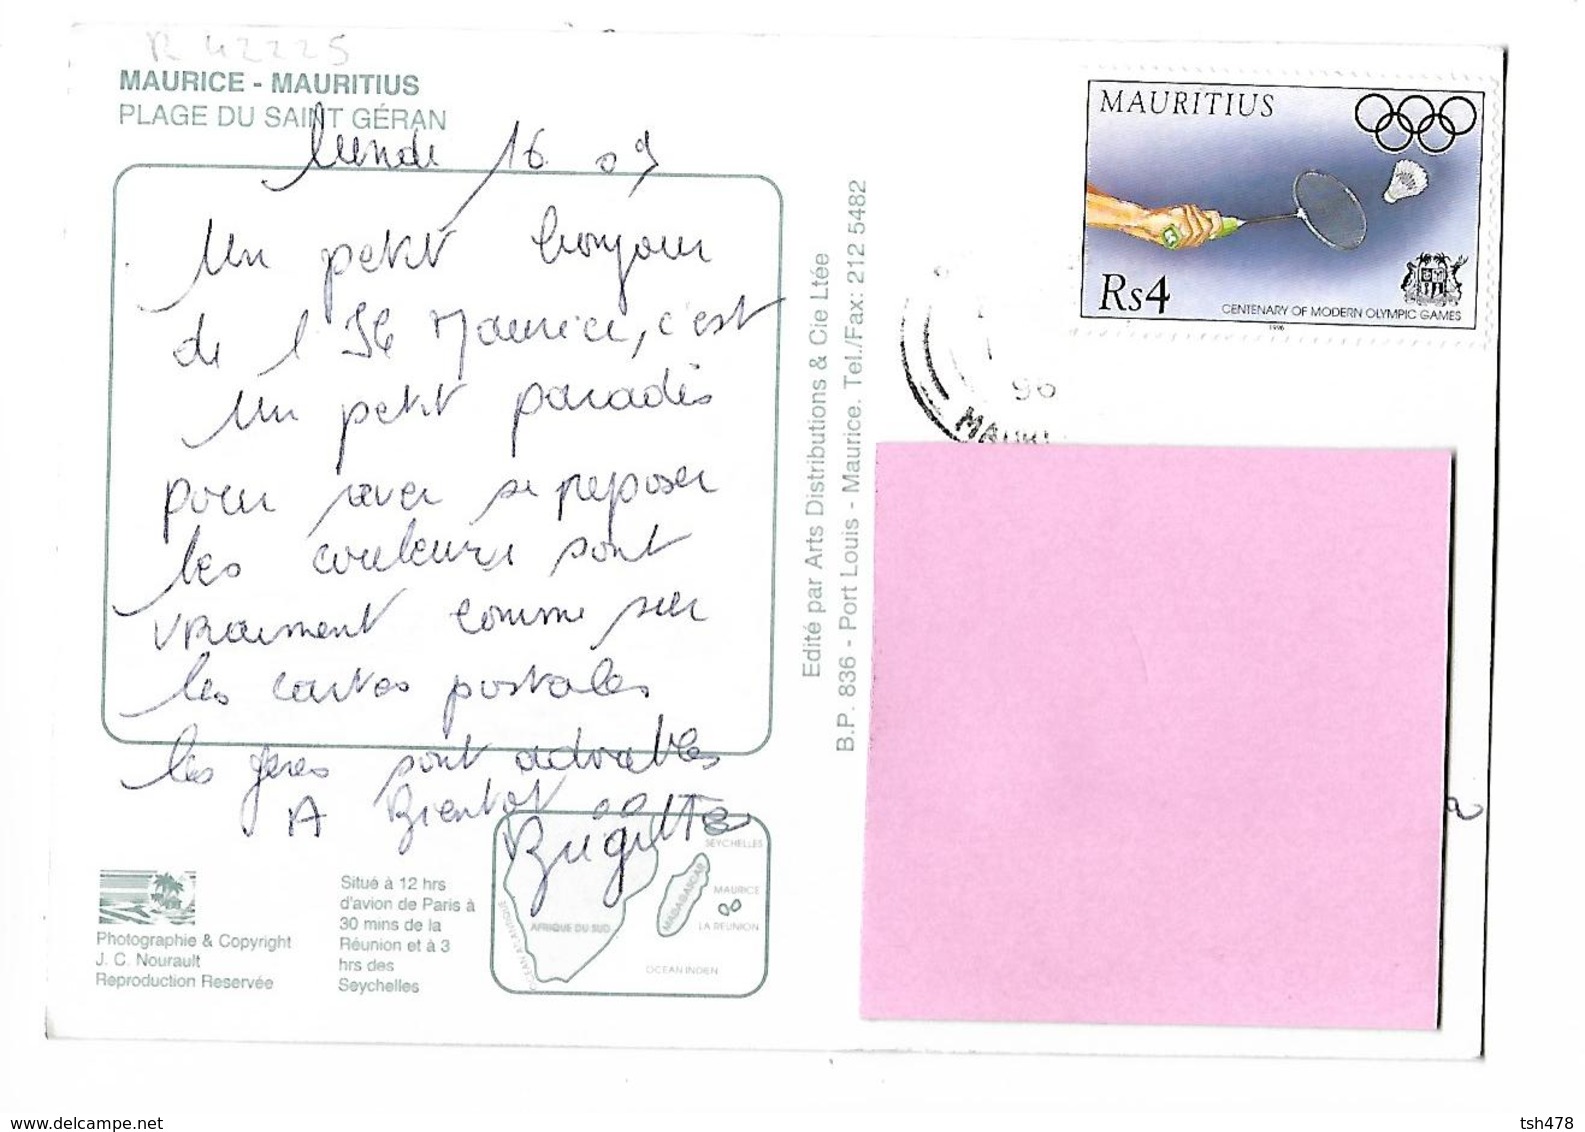 R 42225
MAURICE - MAURITIUS
PLAGE DU SAINT GÉRAN
lundi 16 09
Un petit bonjour
de l'Ile Maurice, c'est
un petit paradis
pour rever se reposer
les couleurs sont
vraiment comme sur
les cartes postales
les gens sont adorables
A Bientot
Brigitte
Photographie & Copyright
J. C. Nourault
Reproduction Reservée
Situé à 12 hrs
d'avion de Paris à
30 mins de la
Réunion et à 3
hrs des
Seychelles
SEYCHELLES
MAURICE
MADAGASCAR
LA REUNION
AFRIQUE DU SUD
OCEAN ATLANTIQUE
OCEAN INDIEN
Edité par Arts Distributions & Cie Ltée
B.P. 836 - Port Louis - Maurice. Tel./Fax: 212 5482
MAURITIUS
Rs4
CENTENARY OF MODERN OLYMPIC GAMES
1996
96
www.delcampe.net
tsh478